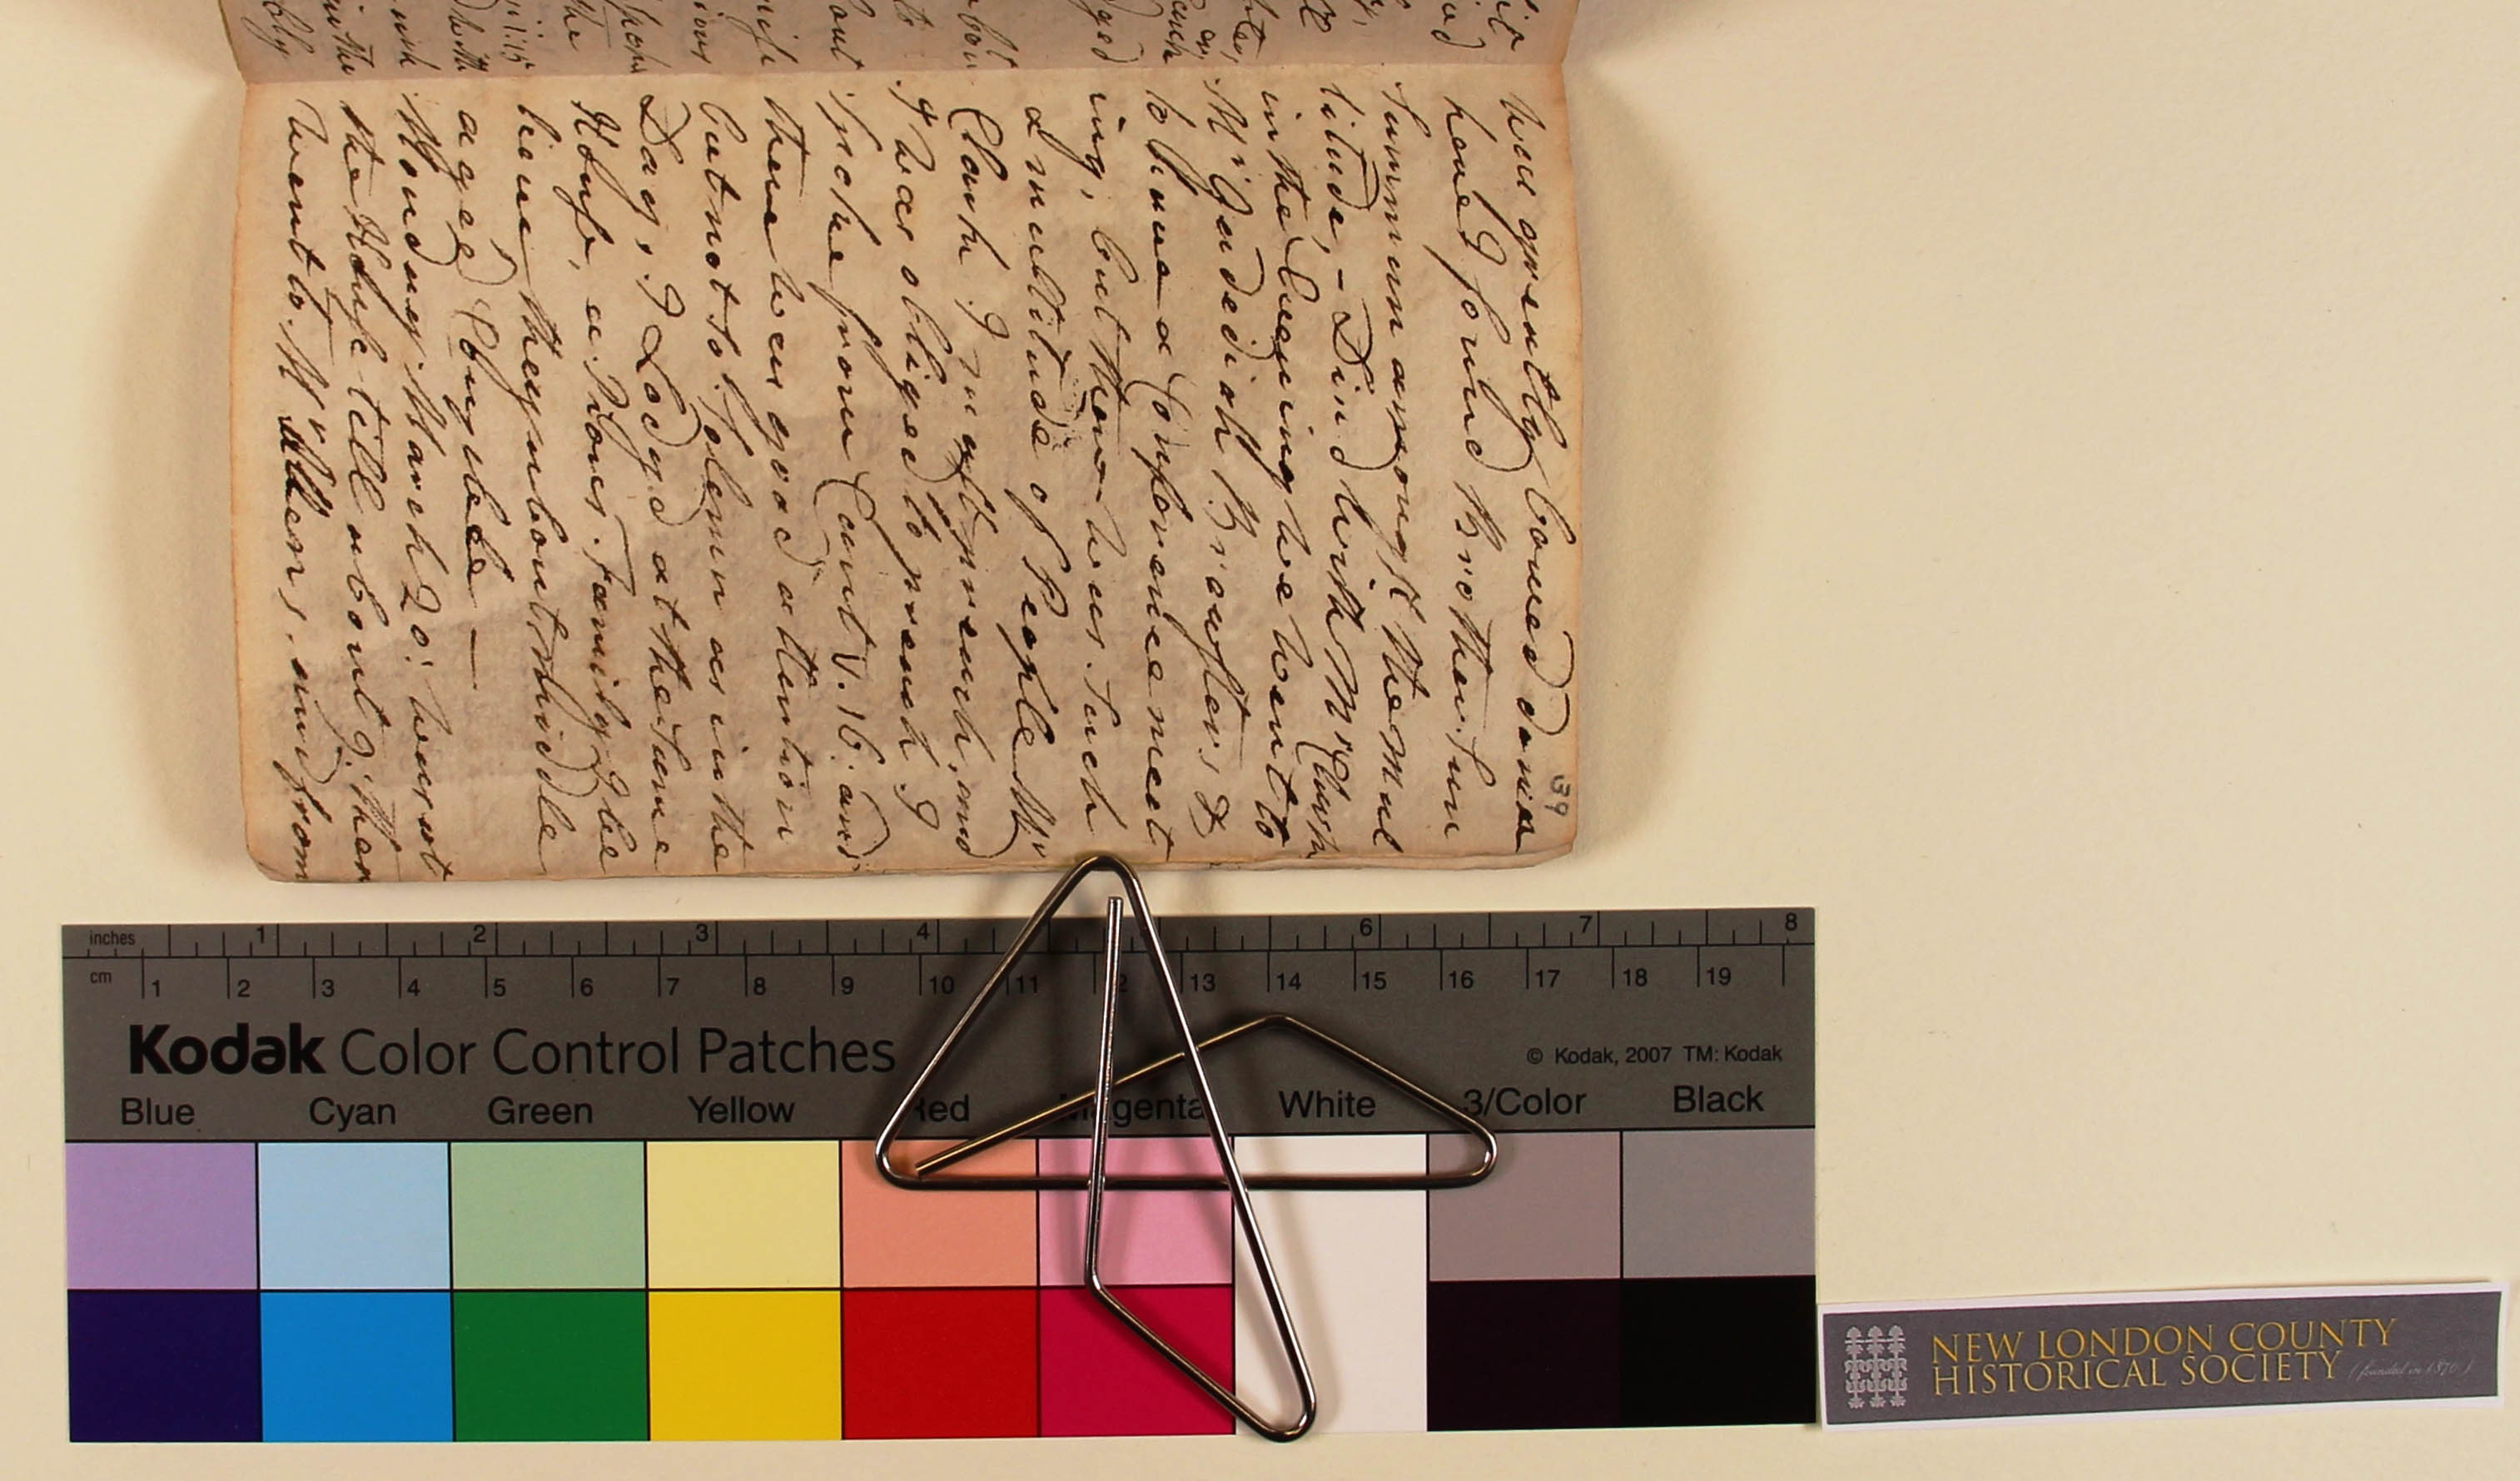 39
was greatly bowed down
here I found Brother Sam
Summun amongst the Mul
titude, - Dind with Mr Clark
in the Evening we went to
Mr Gadediah Brewsters &
to have a Conference meet
ing, but there was Such
a multitude of People Mr
Clark I to preach, and
I was obliged to preach I
Spoke from Cant V. 16: and
there was good attention
but not So Solemn as in the
Day, I Lodgd at the Same
House, a Pious Family I be
lieve they are about middle
aged Couple —
Monday March 20: was at
the House till about 9: then
went to Mr Allens, and from
inches 1 2 3 4 6 7 8
cm 1 2 3 4 5 6 7 8 9 10 11 12 13 14 15 16 17 18 19
Kodak Color Control Patches
© Kodak, 2007 TM: Kodak
Blue Cyan Green Yellow Red Magenta White 3/Color Black
NEW LONDON COUNTY
HISTORICAL SOCIETY (founded in 1870)